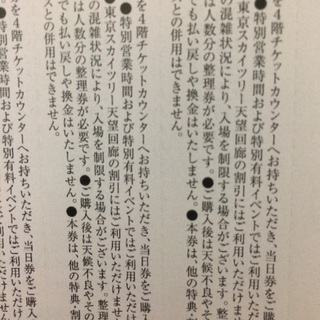 を4階チケットカウンターへお持ちいただき、当日券をご購
●特別営業時間および特別有料イベントではご利用いただけ
東京スカイツリー天望回廊の割引にはご利用いただけません
の混雑状況により、入場を制限する場合がございます。整理
は人数分の整理券が必要です。●ご購入後は天候不良やその
でも払い戻しや換金はいたしません。●本券は、他の特典・割
スとの併用はできません。
を4階チケットカウンターへお持ちいただき、当日券をご購入
●特別営業時間および特別有料イベントではご利用いただけ
東京スカイツリー天望回廊の割引にはご利用いただけません
の混雑状況により、入場を制限する場合がございます。整
は人数分の整理券が必要です。●ご購入後は天候不良やそ
でも払い戻しや換金はいたしません。●本券は、他の特典
スとの併用はできません。